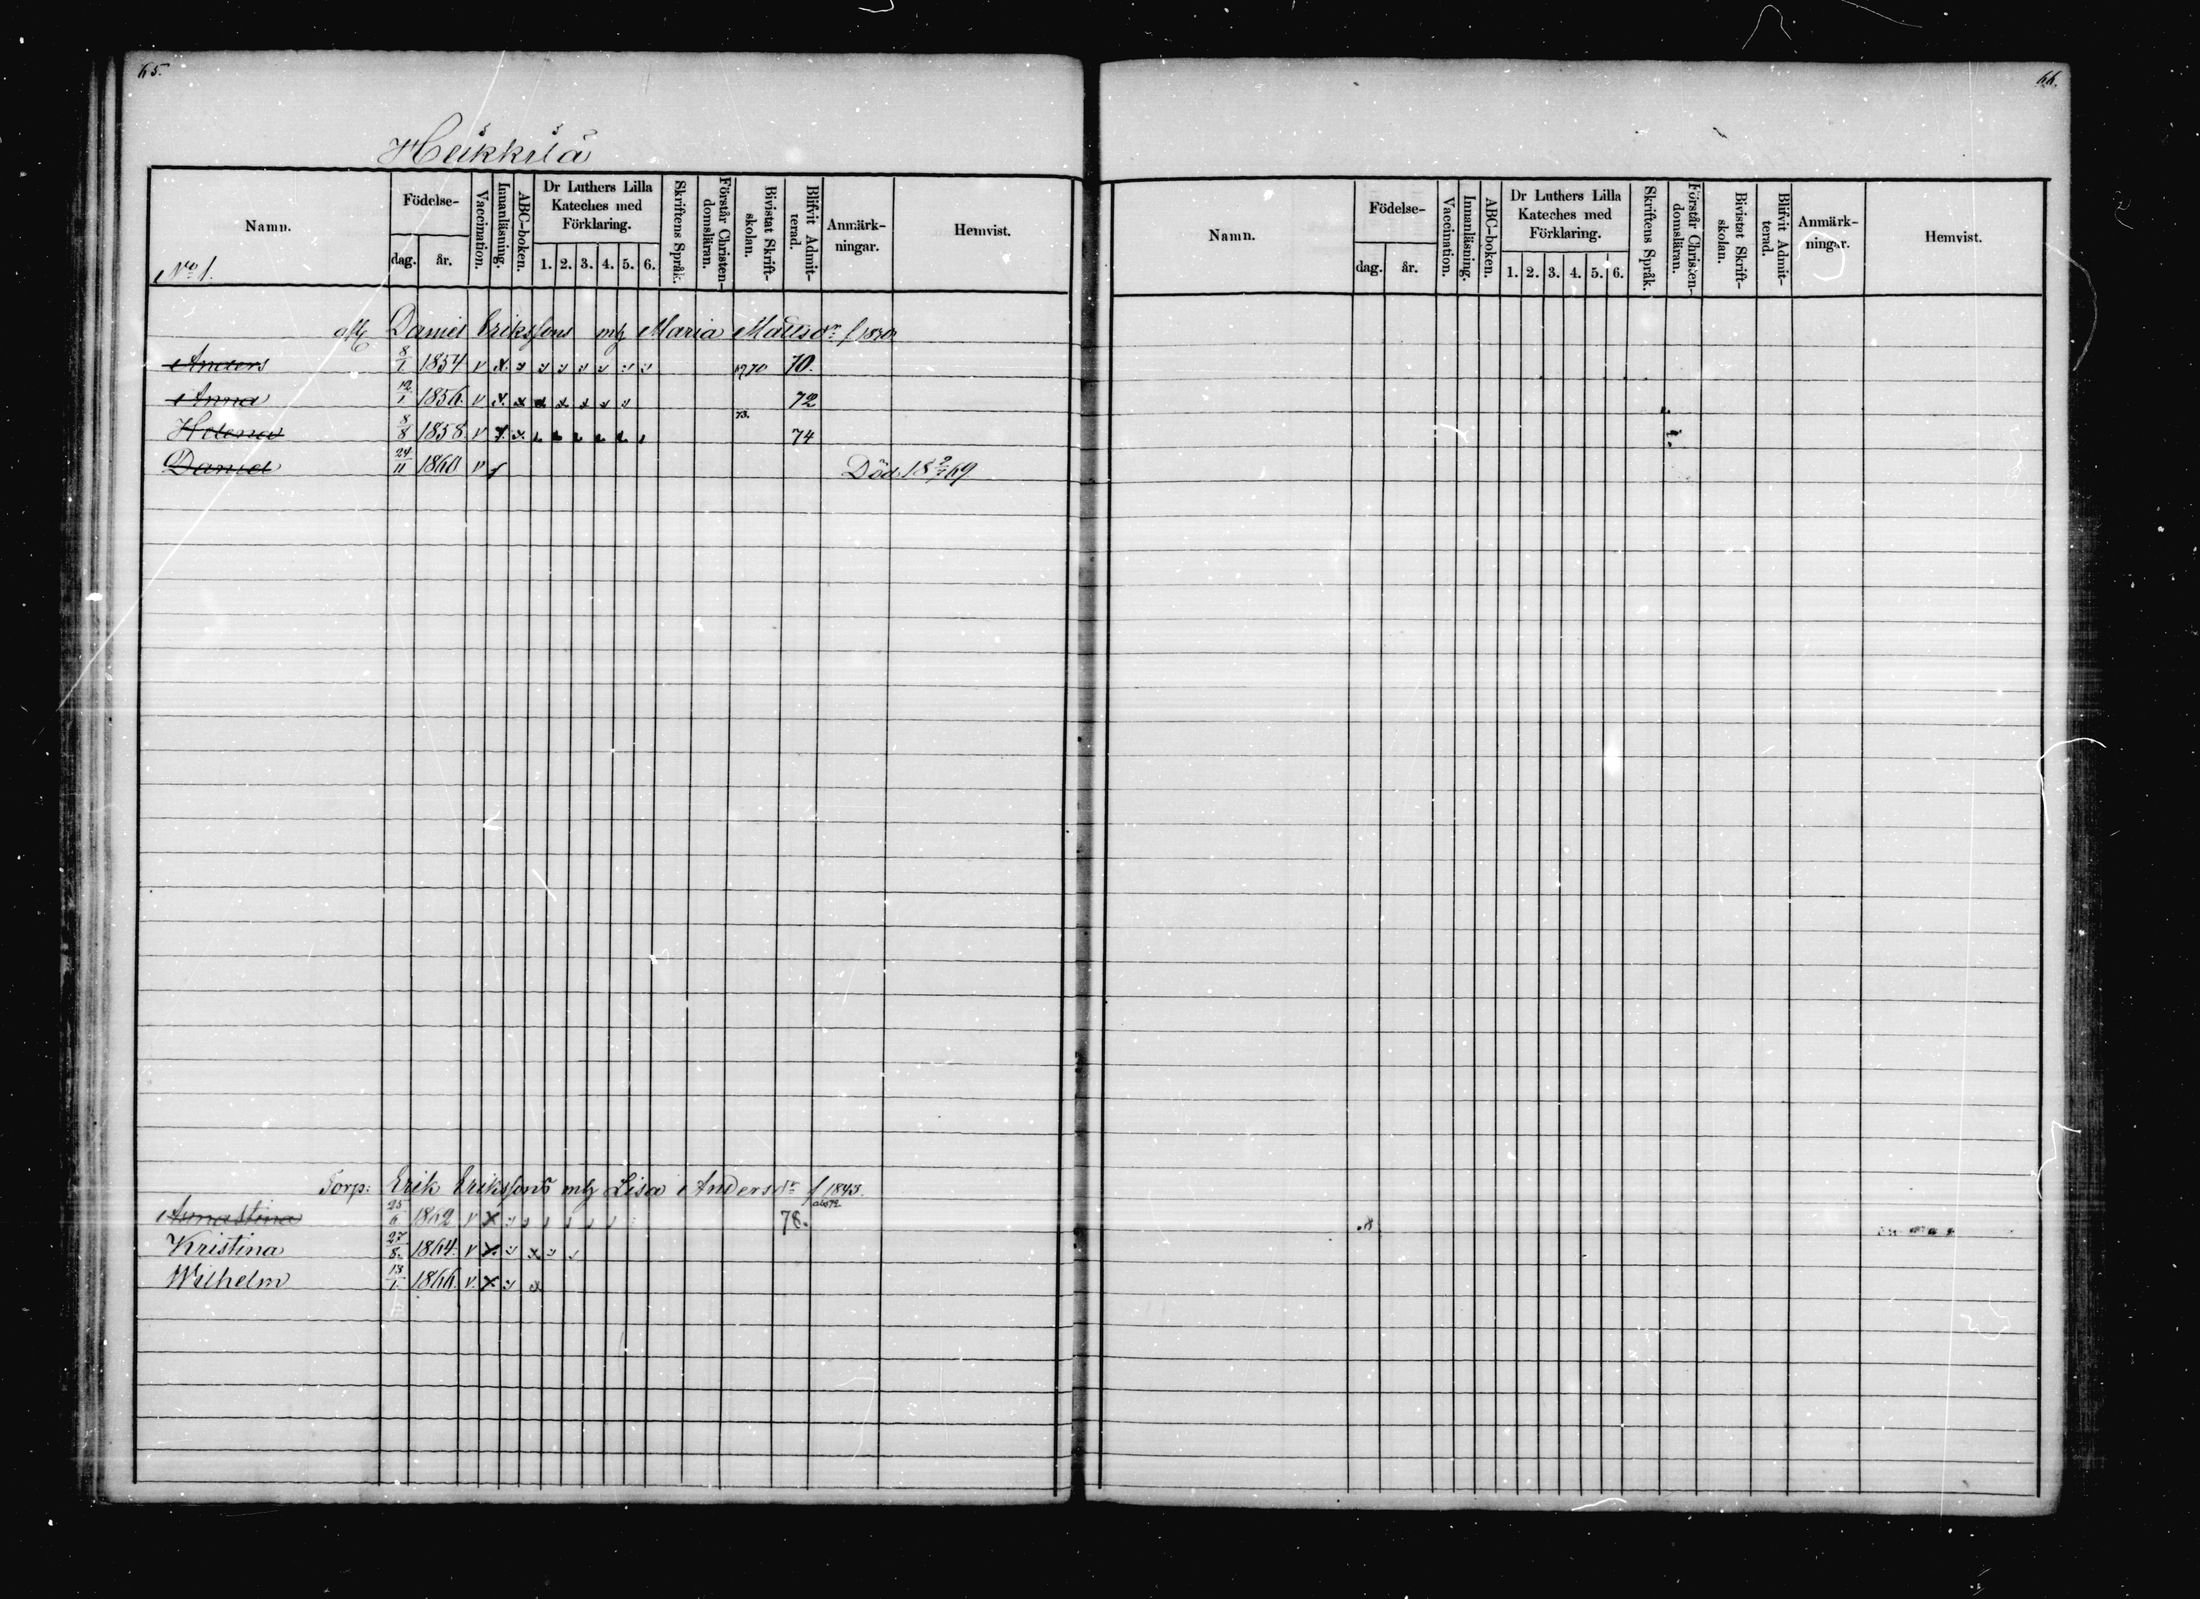 65.
Heikkilä
Namn.
Födelse-
dag. år.
Vaccination.
Innanläsning.
ABC-boken.
Dr Luthers Lilla Kateches med Förklaring.
1. 2. 3. 4. 5. 6.
Skriftens Språk.
Förstår Christen-domsläran.
Bivistat Skrift-skolan.
Blifvit Admit-terad.
Anmärk-ningar.
Hemvist.
No 1.
Daniel Erikssons mh Maria Mattsdr
Anders 8/1 1854 v x 70.
Anna 12/1 1856 v x x 72
Helena 8/8 1858 v x x 73. 74
Daniel 24/11 1860 v Död 18 69
Torp: Erik Erikssons mh Lisa Andersdr f 1843.
Annastina 25/6 1862 v x 78.
Kristina 27/8 1864 v x
Wilhelm 13/1 1866 v. x
66.
Namn.
Födelse-
dag. år.
Vaccination.
Innanläsning.
ABC-boken.
Dr Luthers Lilla Kateches med Förklaring.
1. 2. 3. 4. 5. 6.
Skriftens Språk.
Förstår Christen-domsläran.
Bivistat Skrift-skolan.
Blifvit Admit-terad.
Anmärk-ningar.
Hemvist.